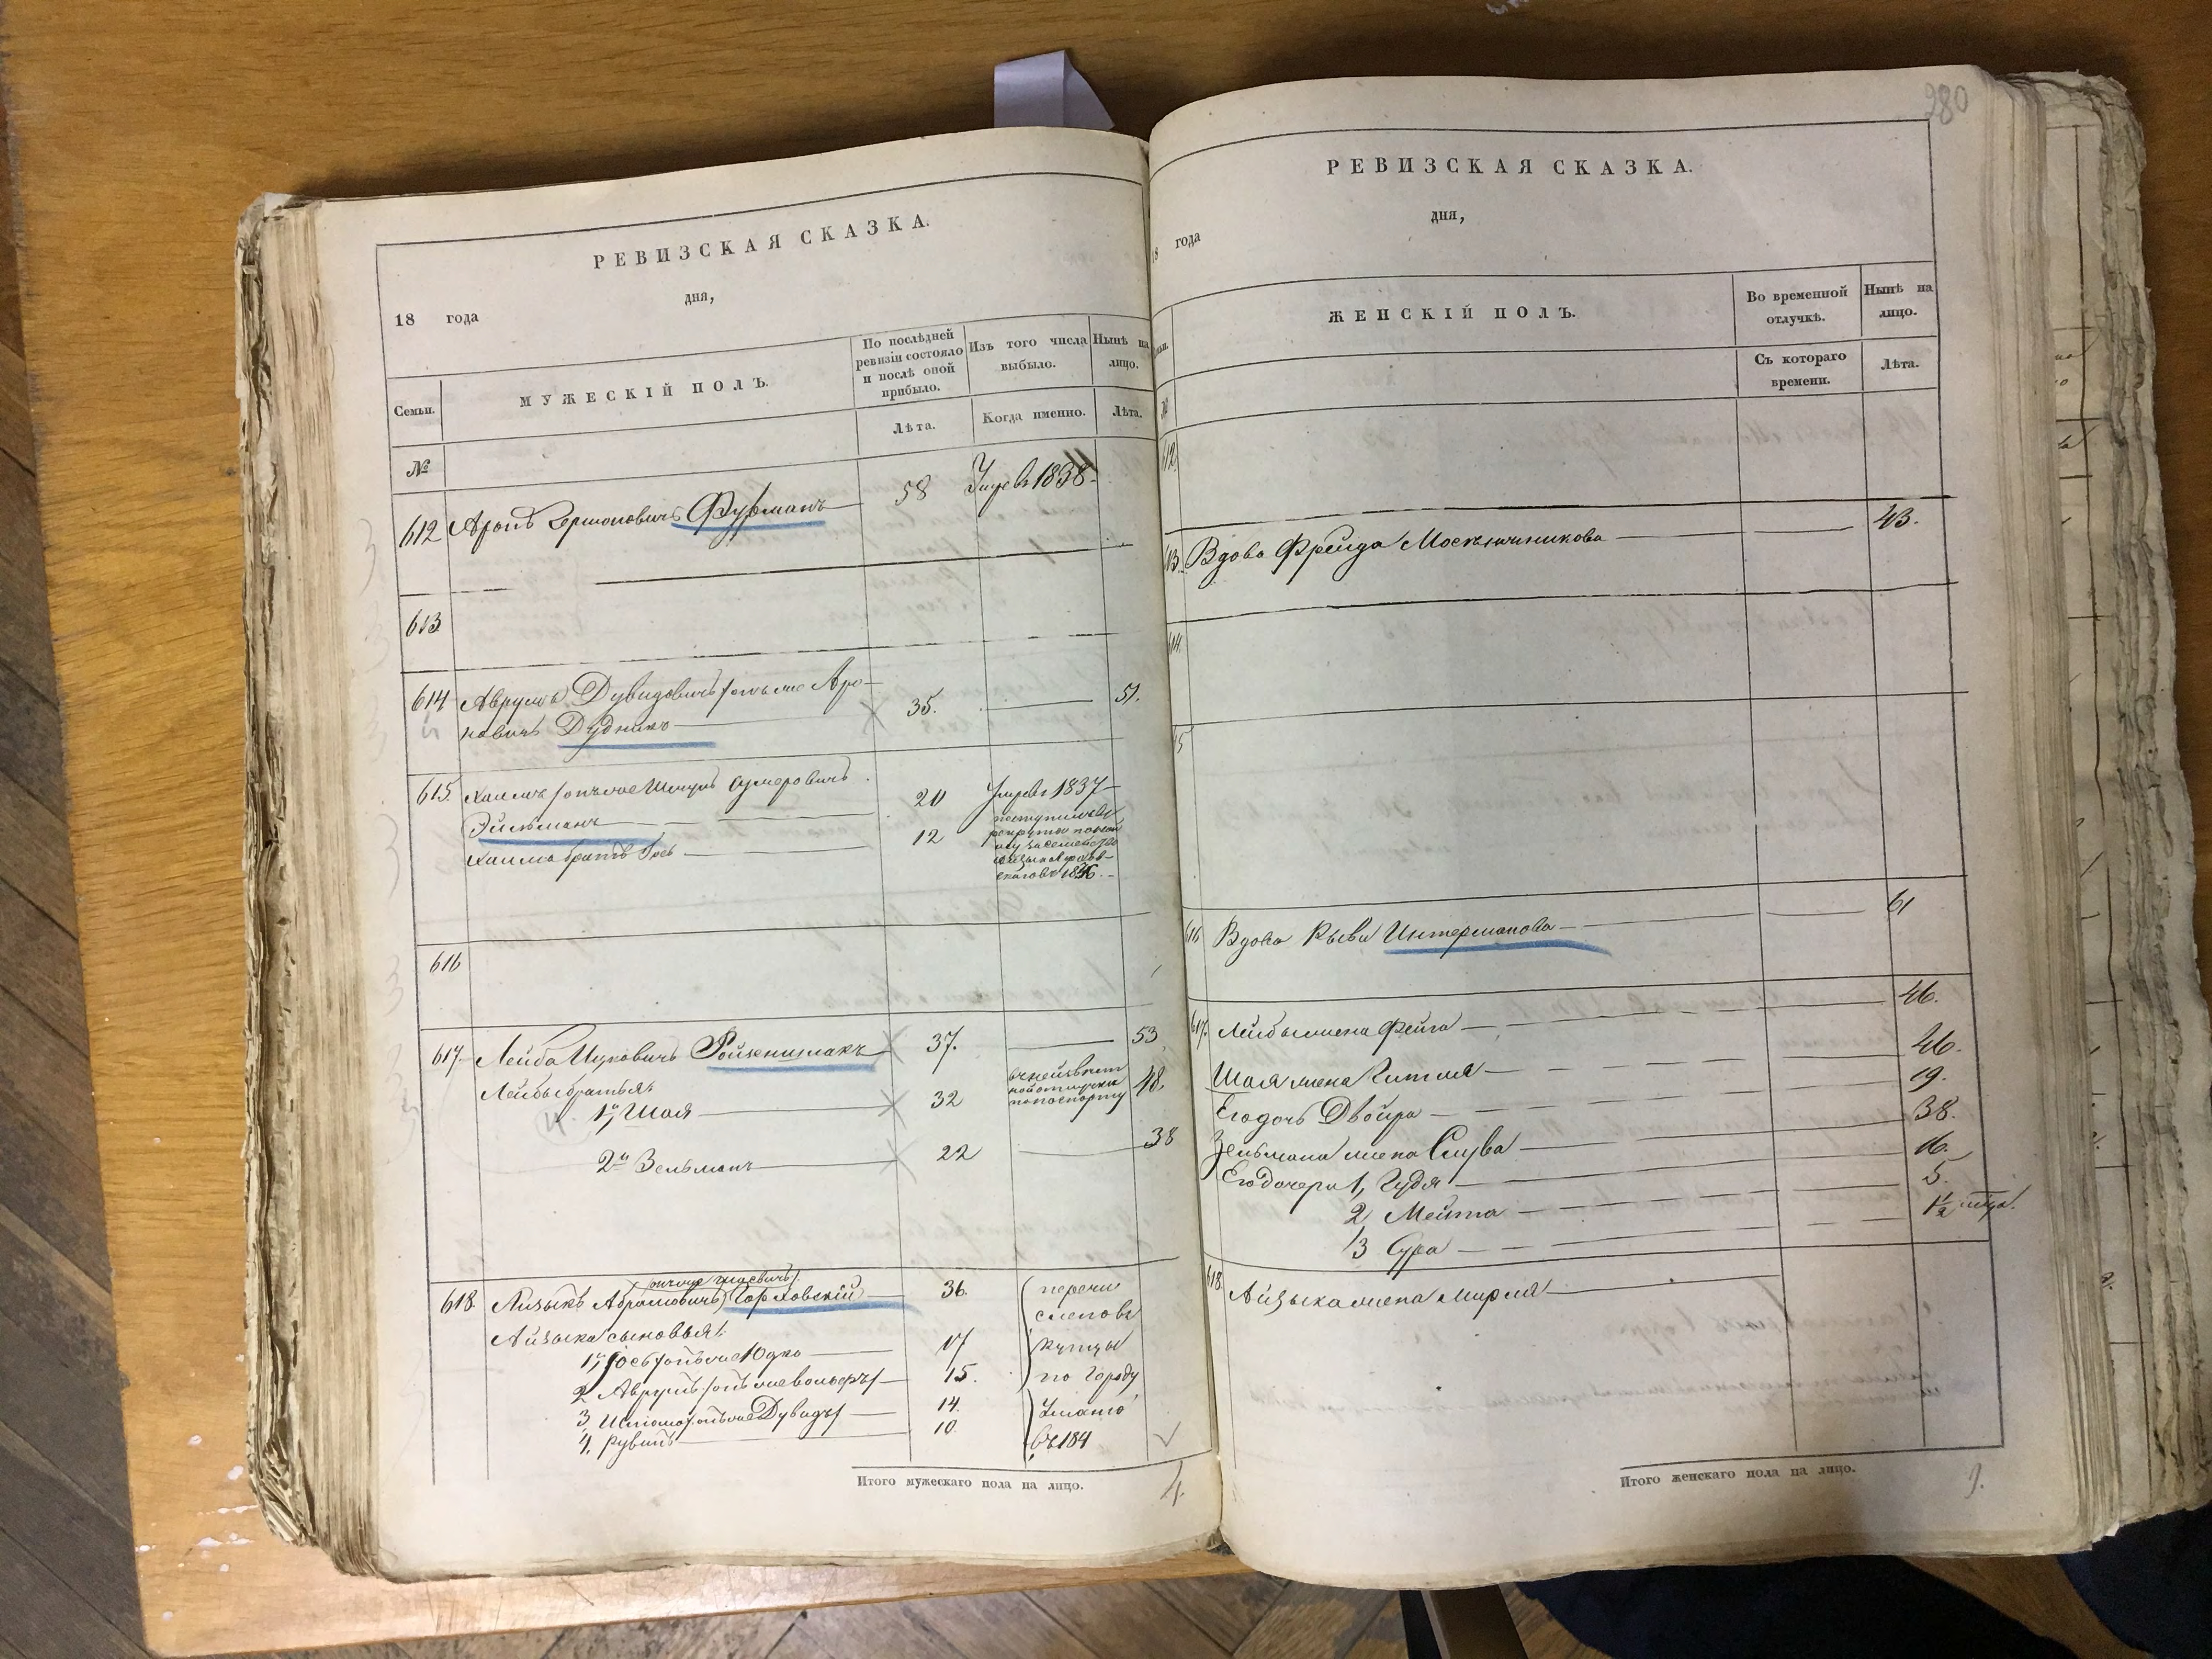 РЕВИЗСКАЯ СКАЗКА.
18 года дня,
Семьи. МУЖЕСКІЙ ПОЛЪ. По послѣдней ревизіи состояло и послѣ оной прибыло. Изъ того числа выбыло. Нынѣ на лицо.
№ Лѣта. Когда именно. Лѣта.
612 Аронъ Гершоновичъ Фурманъ 58 Умре въ 1838
613
614 Аврумъ Дувидовичъ онъ же Аро-
новичъ Дудникъ 35. 51.
615. Хаимъ онъ же Шмулъ 20 Умре въ 1837
Эйльманъ
Хаима братъ Іось 12 поступилъ въ рекруты
616
617 Лейба Ицковичъ Ройкншмакъ 37. 53
Лейбы братья:
1й, Шая 32 48.
2й Зельманъ 22 38
618. Айзыкъ Абрамовичъ Горховскій 36. перечи
сленъ въ
Айзыка сыновья:
1й, Іось онъ же Юдко 17 купцы
2 Аврумъ 15. по городу
3, онъ же Дувидъ 14. Умань
4, Рувинъ 10. въ 184
Итого мужескаго пола на лицо. 4.
280
РЕВИЗСКАЯ СКАЗКА.
18 года дня,
ЖЕНСКІЙ ПОЛЪ. Во временной отлучкѣ. Нынѣ на лицо.
№ Съ котораго времени. Лѣта.
612
613. Вдова Фрейда 43.
614.
615
616 Вдова Рыва Интерманова 61
617. Лейбы жена Фейга 46.
Шая жена Гитля 46.
Его дочь Двойра 19.
Зельмана жена Слува 38.
Его дочери 1, Гудя 16.
2, Мейта 5.
3 Сура 1½ года.
618. Айзыка жена Мирля
Итого женскаго пола на лицо. 9.